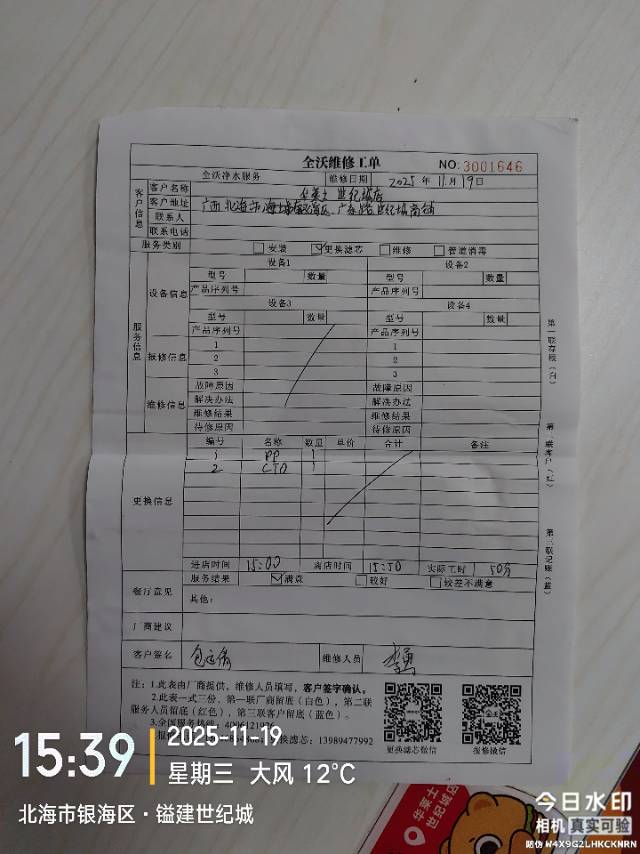 全沃维修工单
NO: 3001646
全沃净水服务 维修日期 2025年11月19日
客户信息
客户名称 华莱士世纪城店
客户地址 广西北海市
联系人
联系电话
服务类别 安装 更换滤芯 维修 管道消毒
服务信息
设备信息
设备1 设备2
型号 数量 型号 数量
产品序列号 产品序列号
设备3 设备4
型号 数量 型号 数量
产品序列号 产品序列号
报修信息
1 1
2 2
3 3
维修信息
故障原因 故障原因
解决办法 解决办法
维修结果 维修结果
待修原因 待修原因
更换信息
编号 名称 数量 单价 合计 备注
1 PP 1
2 CTO 1
进店时间 15:00 离店时间 15:50 实际工时 50分
餐厅意见
服务结果 满意 较好 较差不满意
其他:
厂商建议
客户签名 维修人员
注:1.此表由厂商提供,维修人员填写,客户签字确认。
2.此表一式三份、第一联厂商留底(白色),第二联
服务人员留底(红色),第三联客户留底(蓝色)。
3.全国服务热线:
换滤芯:13989477992
更换滤芯微信 报修微信
第一联存根(白)
第三联记账(蓝)
15:39
2025-11-19
星期三 大风 12℃
北海市银海区·镒建世纪城
华莱士
世纪城店
今日水印
相机 真实可验
防伪 W4X9G2LHKCKNRN